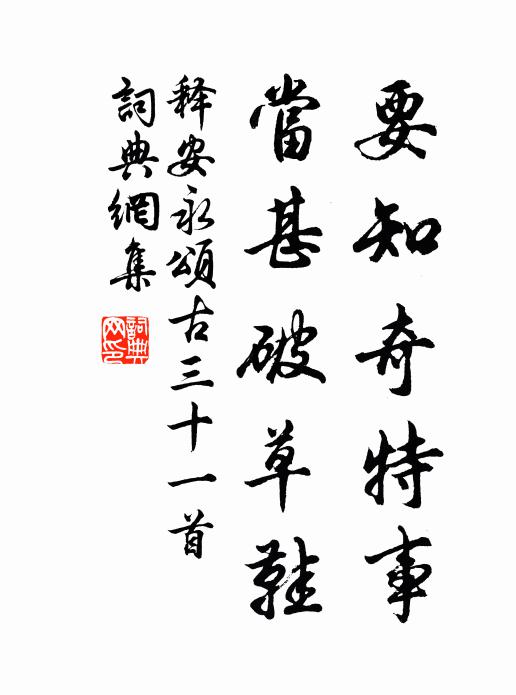 要知奇特事
當甚破草鞋
释安永頌古三十一首
詞典網集
詞典网印